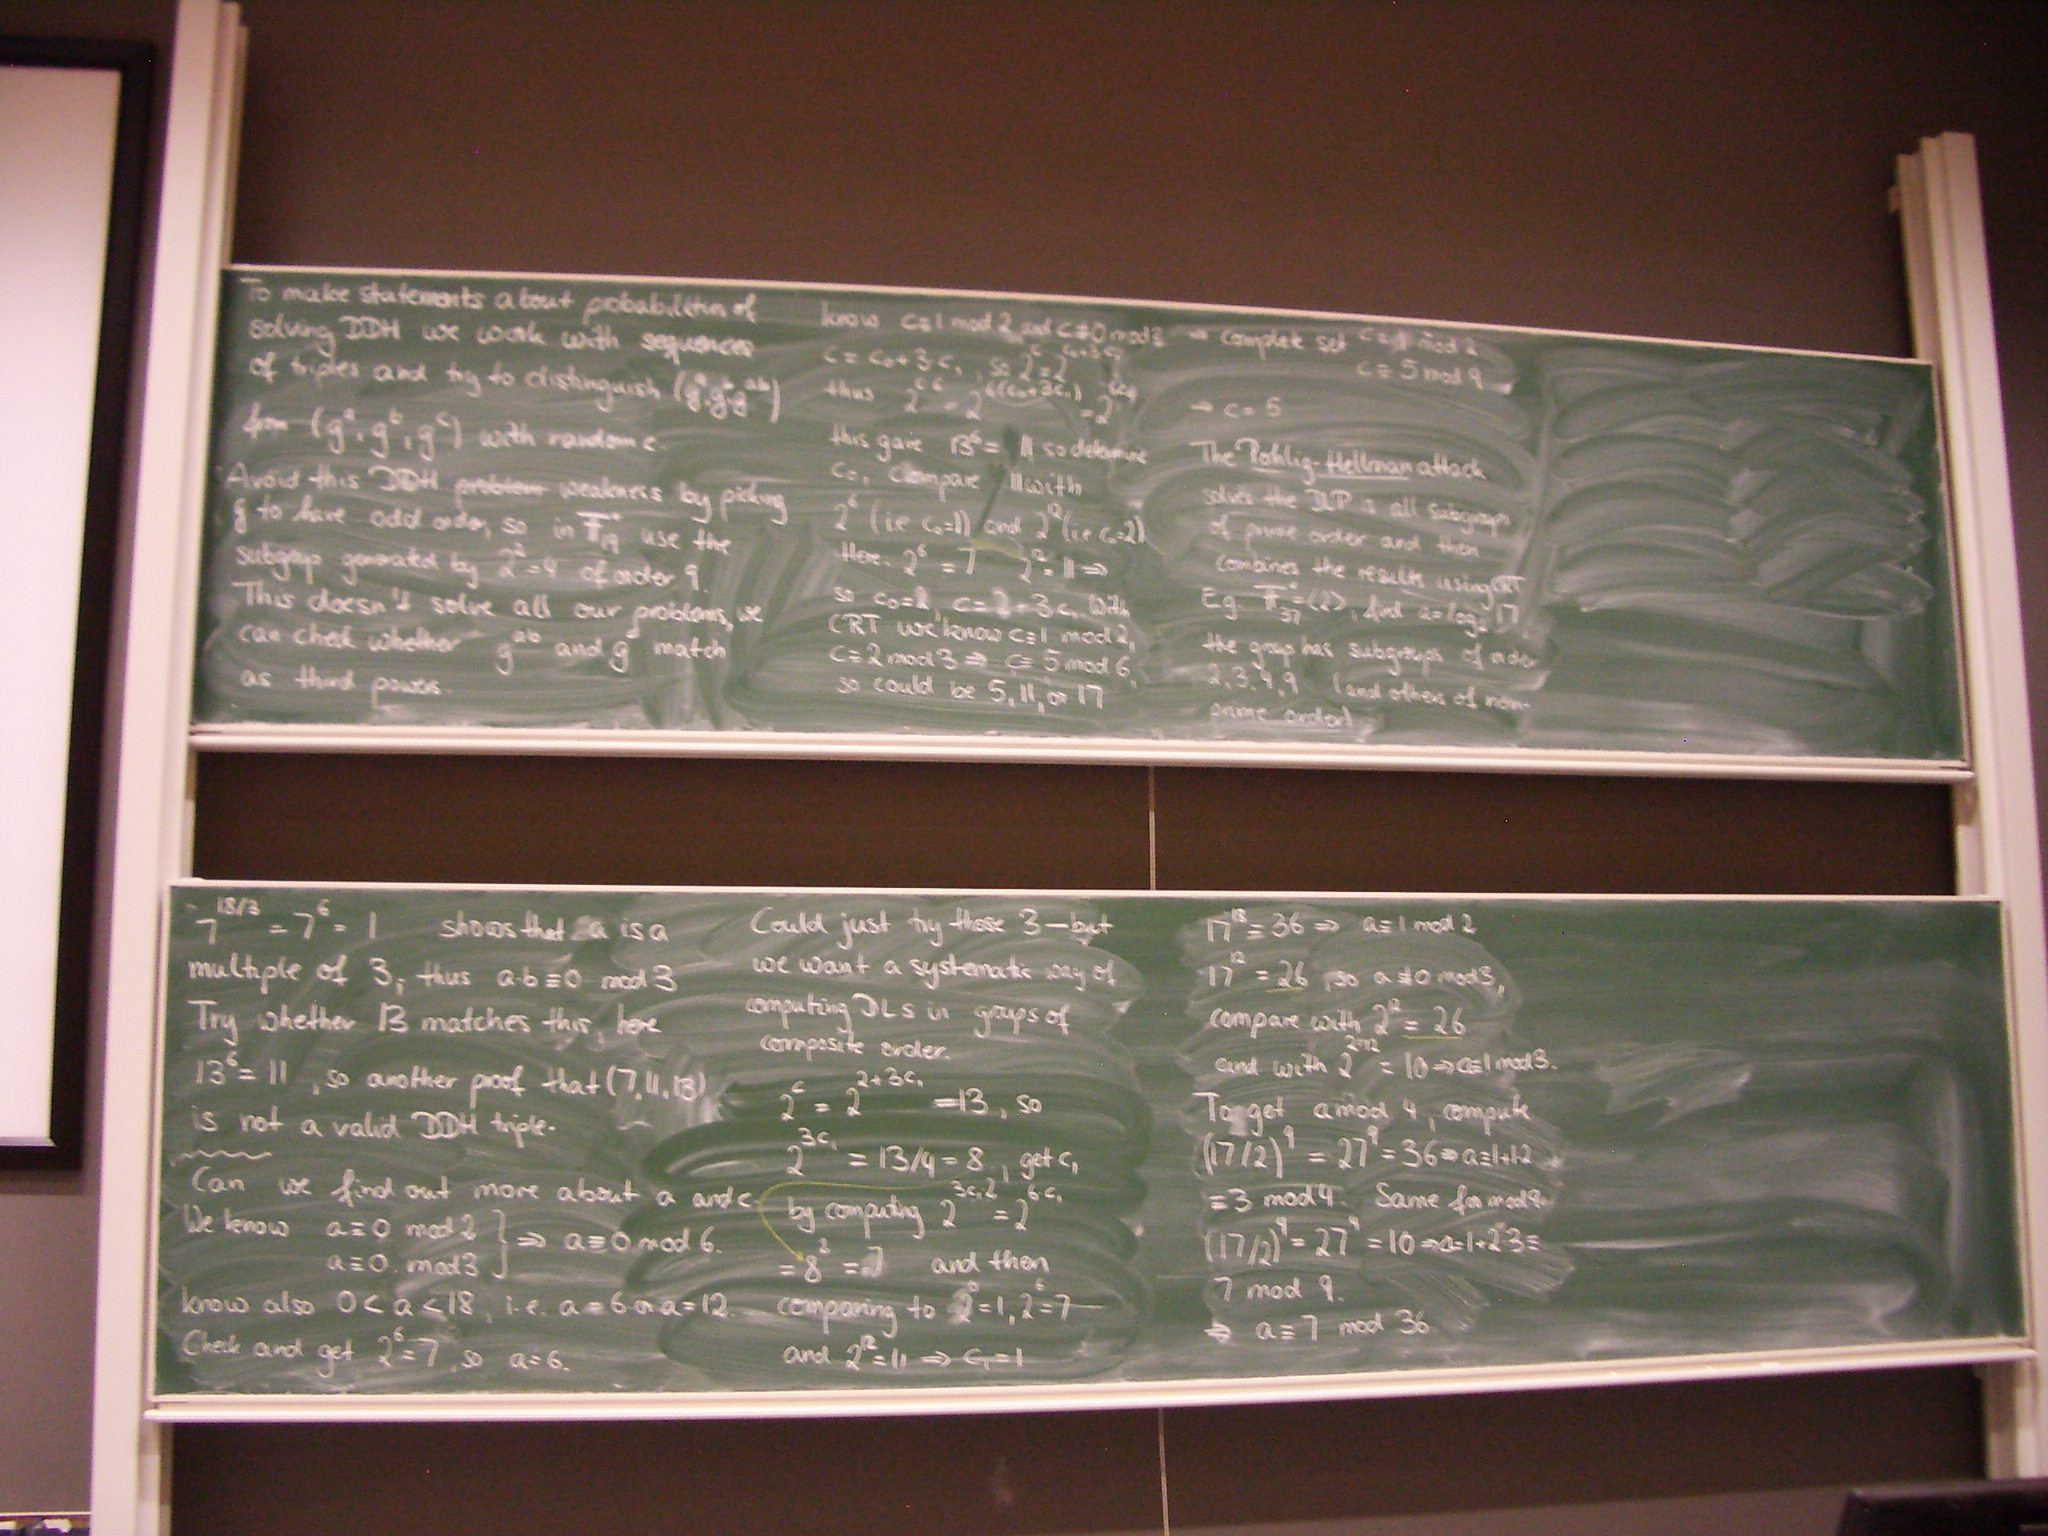 To make statements about probabilities of
solving DDH we work with sequences
of triples and try to distinguish (g^a, g^b, g^ab)
from (g^a, g^b, g^c) with random c.
Avoid this DDH problem weakness by picking
g to have odd order, so in F*_19 use the
subgroup generated by 2^2=4 of order 9.
This doesn't solve all our problems, we
can check whether g^ab and g^c match
as third powers.
know c≡1 mod 2 and c≢0 mod 3
c = c₀+3·c₁, so 2^c = 2^(c₀+3c₁)
thus 2^(c·6) = 2^(6(c₀+3c₁)) = 2^(6c₀)
this gave 13^6 = 11 so determine
c₀, compare 11 with
2^6 (i.e c₀=1) and 2^12 (i.e c₀=2)
Here: 2^6 = 7 2^12 = 11 ⇒
so c₀=2, c=2+3c₁ With
CRT we know c≡1 mod 2,
c≡2 mod 3 ⇒ c≡5 mod 6,
so could be 5, 11, or 17
→ complete set c≡1 mod 2
c≡5 mod 9
→ c=5
The Pohlig-Hellman attack
solves the DLP in all subgroups
of prime order and then
combines the results using CRT
Eg F*_37=⟨2⟩, find a=log₂ 17
the group has subgroups of order
2, 3, 4, 9 (and others of non-
prime order)
7^(18/3) = 7^6 = 1 shows that a is a
multiple of 3, thus a·b≡0 mod 3
Try whether 13 matches this, here
13^6 = 11, so another proof that (7,11,13)
is not a valid DDH triple.
Can we find out more about a and c
We know a≡0 mod 2
a≡0 mod 3 } ⇒ a≡0 mod 6.
know also 0<a<18, i.e. a=6 or a=12.
Check and get 2^6=7, so a=6.
Could just try those 3 – but
we want a systematic way of
computing DLs in groups of
composite order.
2^c = 2^(2+3c₁) = 13, so
2^(3c₁) = 13/4 = 8, get c₁
by computing 2^(3c₁·2) = 2^(6c₁)
= 8^2 = 7 and then
comparing to 2^0=1, 2^6=7
and 2^12=11 ⇒ c₁=1
17^18 = 36 ⇒ a≡1 mod 2
17^12 = 26, so a≢0 mod 3,
compare with 2^12 = 26
and with 2^(2·12) = 10 ⇒ a≡1 mod 3.
To get a mod 4, compute
(17/2)^9 = 27^9 = 36 ⇒ a≡1+1·2
= 3 mod 4. Same for mod 9.
(17/2)^4 = 27^4 = 10 ⇒ a≡1+2·3=
7 mod 9.
⇒ a≡7 mod 36